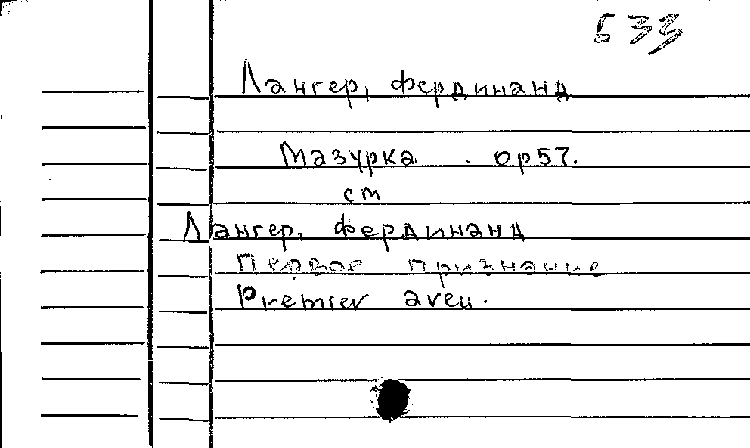 533
Лангер, Фердинанд
Мазурка. op 57.
см
Лангер, Фердинанд
Первое признание
Premier aveu.